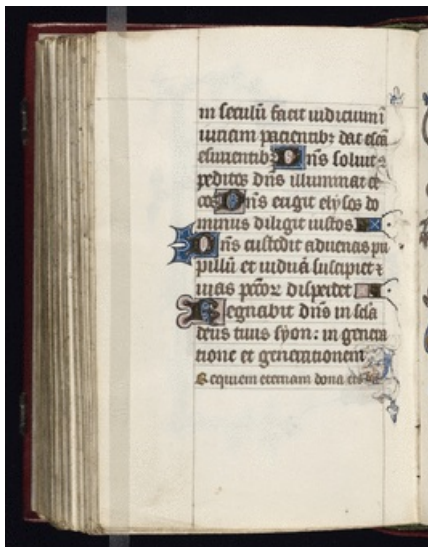 in seculū facit iudicium ī
iuriam pacientibz dat escā
esurientibz Dn̄s soluit 9
peditos dn̄s illuminat ce
cos Dn̄s erigit elysos do
minus diligit iustos
Dn̄s custodit aduenas pu
pillū et uiduā suscipiet ⁊
uias pctōꝝ disperdet
Regnabit dn̄s in scl̄a
deus tuus syon: in genera
tione et generationem
Requiem eternam dona eis